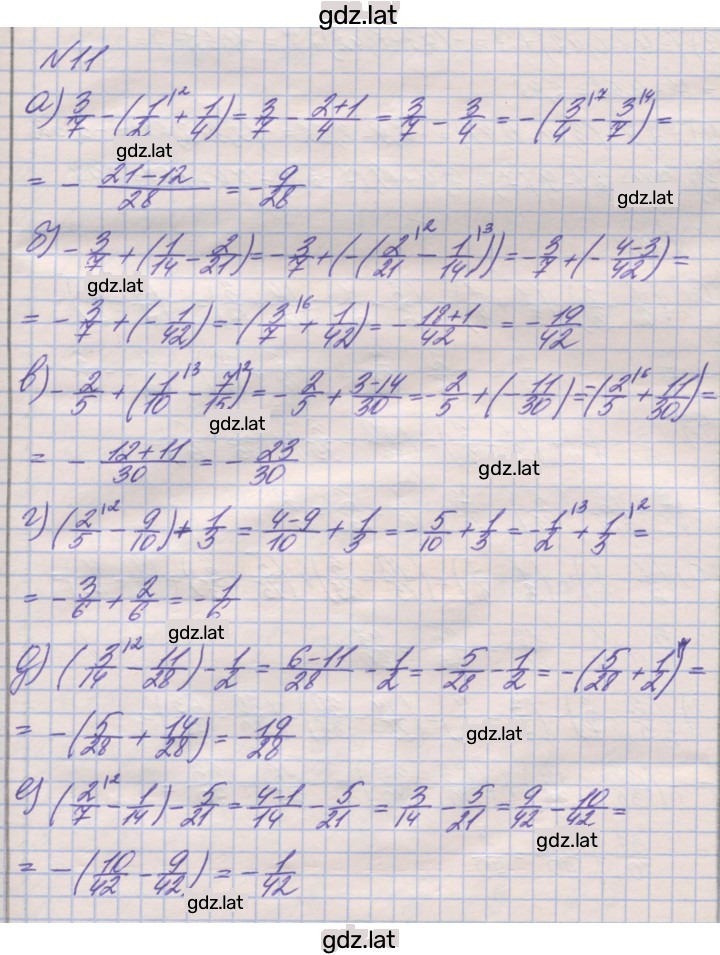 gdz.lat
№11
а) 3/7 - (1/2^{|2} + 1/4) = 3/7 - (2+1)/4 = 3/7 - 3/4 = -(3/4^{|7} - 3/7^{|4}) =
gdz.lat
= - (21-12)/28 = - 9/28
gdz.lat
б) - 3/7 + (1/14 - 2/21) = - 3/7 + (-(2/21^{|2} - 1/14^{|3})) = - 3/7 + (- (4-3)/42) =
gdz.lat
= - 3/7 + (- 1/42) = -(3/7^{|6} + 1/42) = - (18+1)/42 = - 19/42
в) - 2/5 + (1/10^{|3} - 7/15^{|2}) = - 2/5 + (3-14)/30 = - 2/5 + (- 11/30) = -(2/5^{|6} + 11/30) =
gdz.lat
= - (12+11)/30 = - 23/30
gdz.lat
г) (2/5^{|2} - 9/10) + 1/3 = (4-9)/10 + 1/3 = - 5/10 + 1/3 = - 1/2^{|3} + 1/3^{|2} =
= - 3/6 + 2/6 = - 1/6
gdz.lat
д) (3/14^{|2} - 11/28) - 1/2 = (6-11)/28 - 1/2 = - 5/28 - 1/2 = -(5/28 + 1/2) =
= -(5/28 + 14/28) = - 19/28
gdz.lat
е) (2/7^{|2} - 1/14) - 5/21 = (4-1)/14 - 5/21 = 3/14 - 5/21 = 9/42 - 10/42 =
gdz.lat
= -(10/42 - 9/42) = - 1/42
gdz.lat
gdz.lat